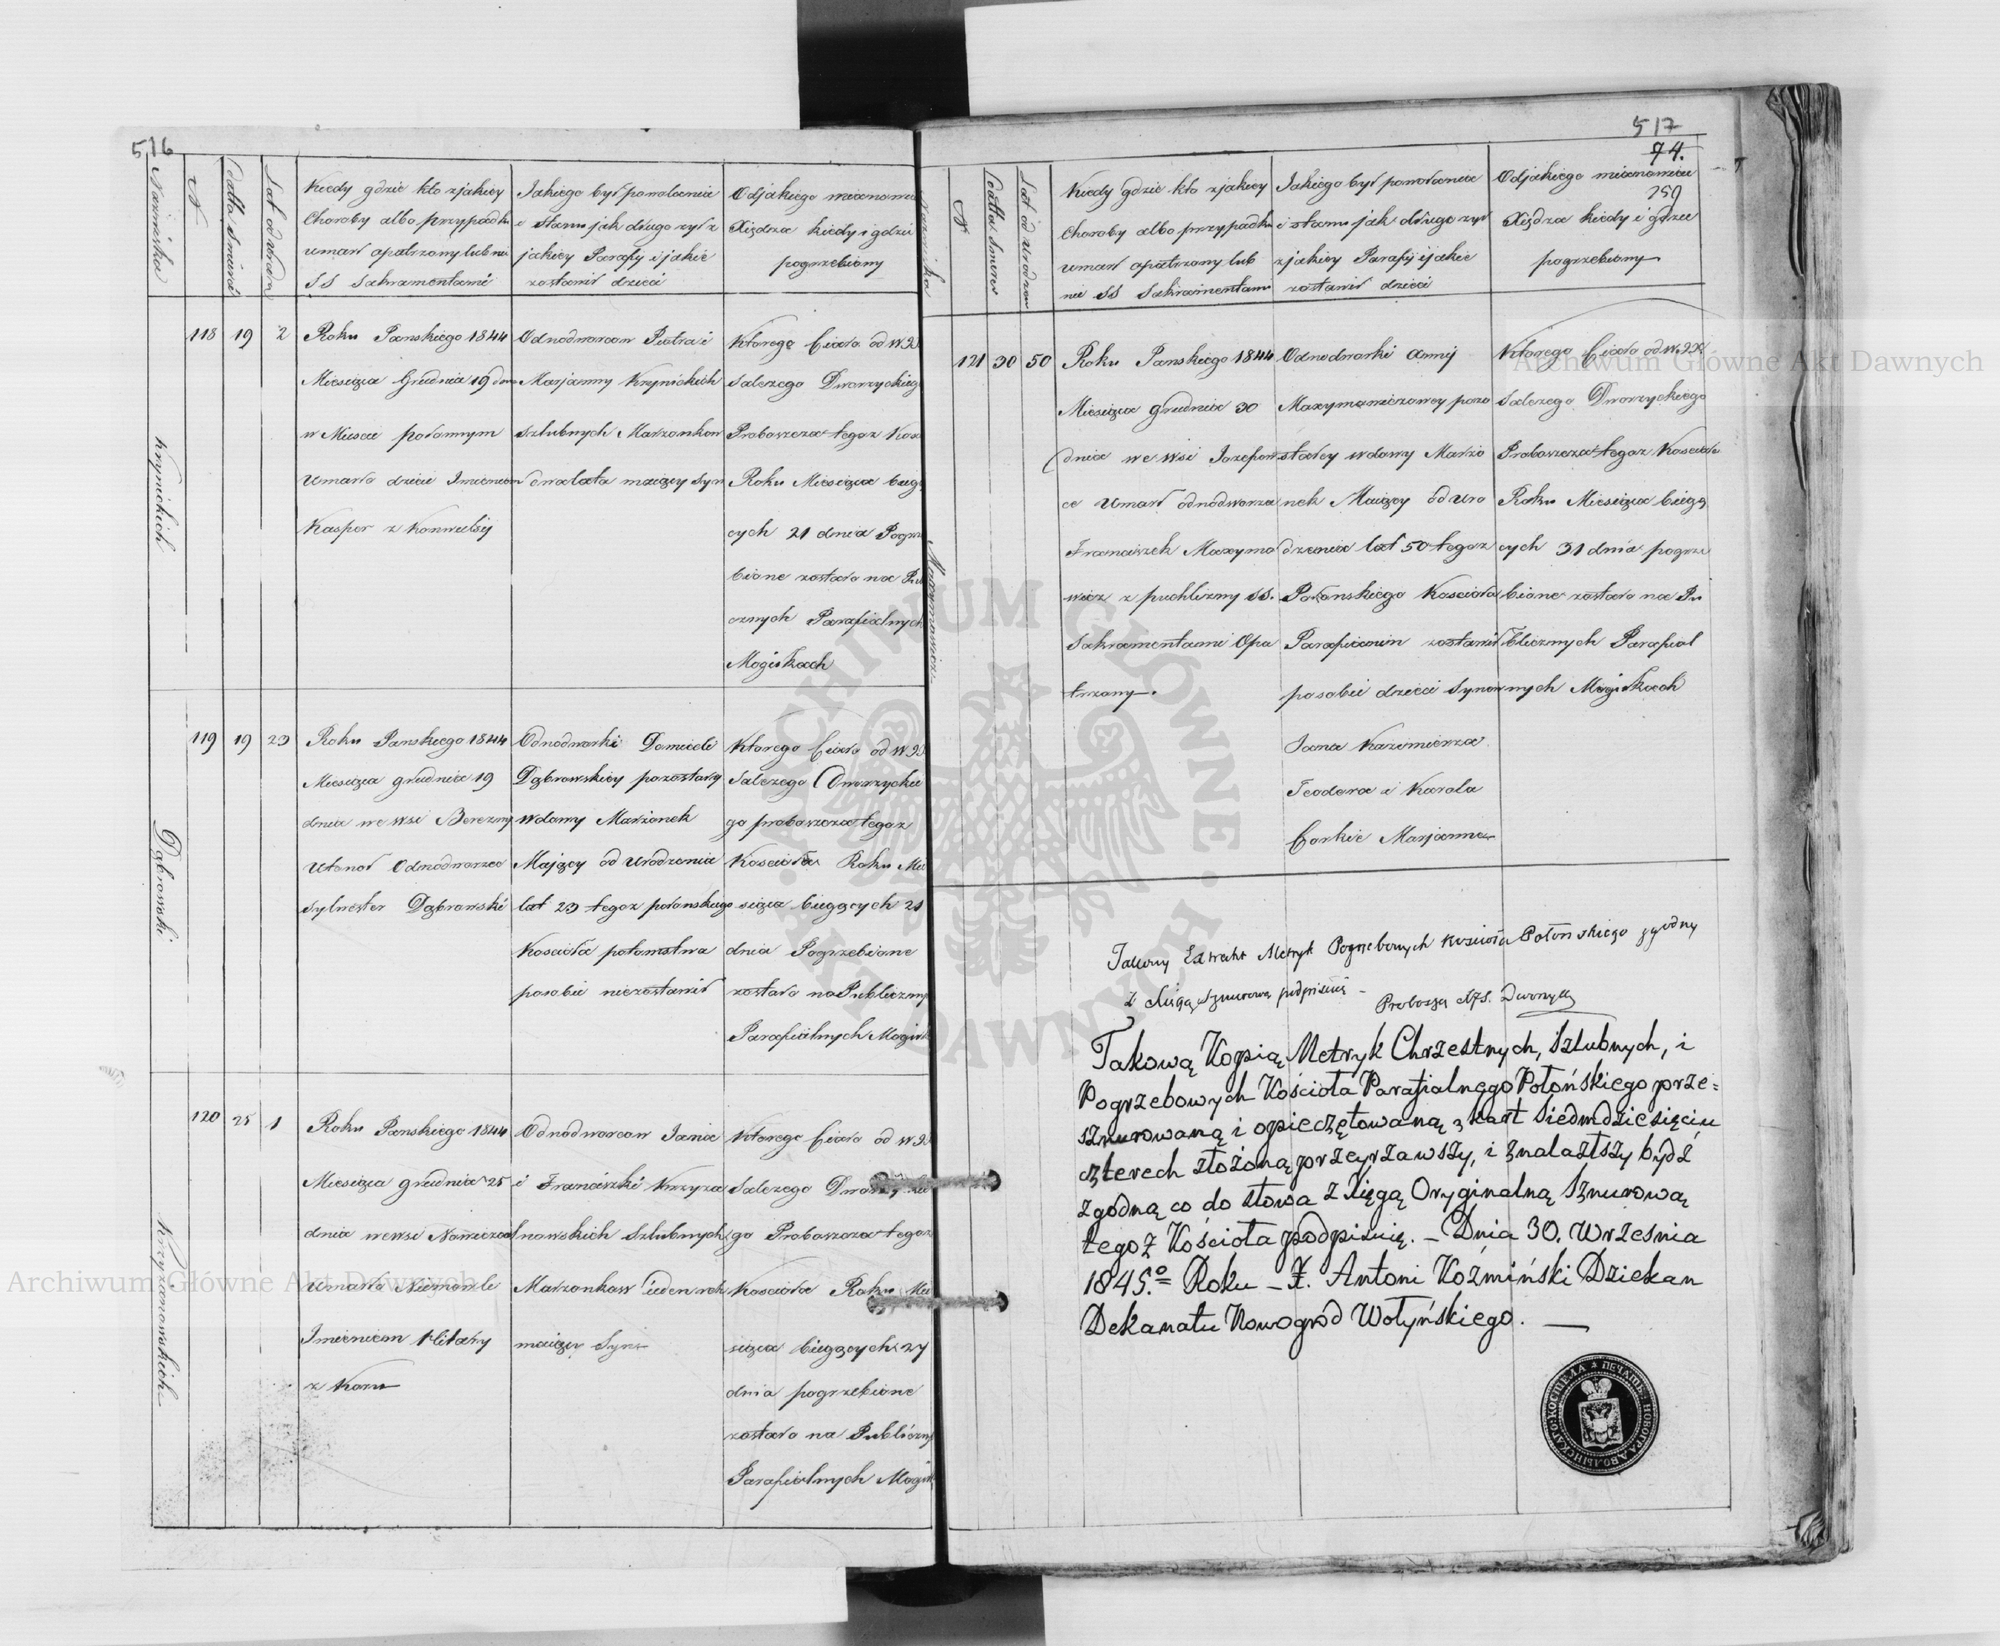 516
Nazwiska
N
Datta Smierci
Lat od urodze
Kiedy gdzie kto zjakiey
Choroby albo przypadku
umarł opatrzony lub nie
SS Sakramentami
Jakiego był powołania
i stanu jak długo żył z
jakiey Parafij i jakie
zostawił dzieci
Odjakiego mianowa
Xiędza kiedy i gdzie
pogrzebiony
Krynickich
118 19 2
Roku Panskiego 1844
Miesiąca Grudnia 19 dnia
w Miescie połonnym
Umarło dziecie Imieniem
Kasper z Konwulsij
Odnodworcow Piotra i
Marjanny Krynickich
Szlubnych Małżonkow
dwalata maiący Syn
Którego Ciało od W JX
Salezego Dworzyckieg
Proboszcza tegoż Kosc
Roku Miesiąca bieg
cych 21 dnia Pogrze
bione zostało na Pub
cznych Parafialnych
Mogiłkach
Dąbrowski
119 19 23
Roku Panskiego 1844
Miesiąca grudnia 19
dnia we wsi Berezny
Utonoł Odnodworzec
Sylwester Dąbrowski
Odnodworki Domiceli
Dąbrowskiey pozostałey
wdowy Małżonek
Mający od Urodzenia
lat 23 tegoż połonskiego
Koscioła potomstwa
posobie niezostawił
Którego Ciało od W JX
Salezego Dworzyckie
go proboszcza tegoż
Koscioła Roku Mie
siąca bieggcych 21
dnia Pogrzebione
zostało na Publiczny
Parafialnych Mogiłk
Krzyżanowskich
120 25 1
Roku Panskiego 1844
Miesiąca grudnia 25
dnia wewsi
Umarło Niemowle
Imieniem
z Koru
Odnodworcow Jana
i Franciszki Krzyża
nowskich Szlubnych
Małżonkow ieden rok
maiący Syn
Którego Ciało od W JX
Salezego Dworzyckie
go Proboszcza tegoż
Koscioła Roku Mie
siąca bieggcych 27
dnia pogrzebione
zostało na Publiczny
Parafialnych Mogiłk
517
74.
259
Nazwiska
N
Datta Smierci
Lat od Urodzen
Kiedy gdzie kto zjakiey
Choroby albo przypadku
umarł opatrzony lub
nie SS Sakramentami
Jakiego był powołania
i stanu jak długo żył
zjakiey Parafij i jakie
zostawił dzieci
Odjakiego mianowicie
Xiędza kiedy i gdzie
pogrzebiony
Maxymowicz
121 30 50
Roku Panskiego 1844
Miesiąca grudnia 30
dnia we wsi Jozefow
ce Umarł odnodworzec
Franciszek Maxymo
wicz z puchliżny SS.
Sakramentami Opa
trzony.
Odnodworki Anny
Maxymowiczowey pozo
stałey wdowy Małżo
nek Maiący od Uro
dzenia lat 50 tegoż
Połonskiego Koscioła
Parafianin zostawił
posobie dzieci Synow
Jana Kazimierza
Teodora i Karola
Corkie Marjanne
Którego Ciało od W JX
Salezego Dworzyckiego
Proboszcza tegoż Kościoła
Roku Miesiąca biegg
cych 31 dnia pogrze
bione zostało na Pu
blicznych Parafial
nych Mogiłkach
Takowy Extrakt Metryk Pogrzebowych Koscioła Połonskiego zgodny
z Xięgą sznurową podpisuię –
Proboszcz XS. Dworzycki
Takową Kopią Metryk Chrzestnych, Szlubnych, i
Pogrzebowych Kościoła Parafialnego Połońskiego prze=
sznurowaną i opieczętowaną z kart siedmdziesięciu
czterech złożoną przeyrzawszy, i znalazłszy bydź
zgodną co do słowa z Xięgą Oryginalną Sznurową
tegoż Kościoła podpisuię. – Dnia 30. Września
1845.º Roku – X. Antoni Koźmiński Dziekan
Dekanatu Nowogród Wołyńskiego. —
ПЕЧАТЬ НОВОГРАДВОЛЫНСКАГО КОСТЕЛА
ARCHIWUM GŁÓWNE AKT DAWNYCH
Archiwum Główne Akt Dawnych
Archiwum Główne Akt Dawnych